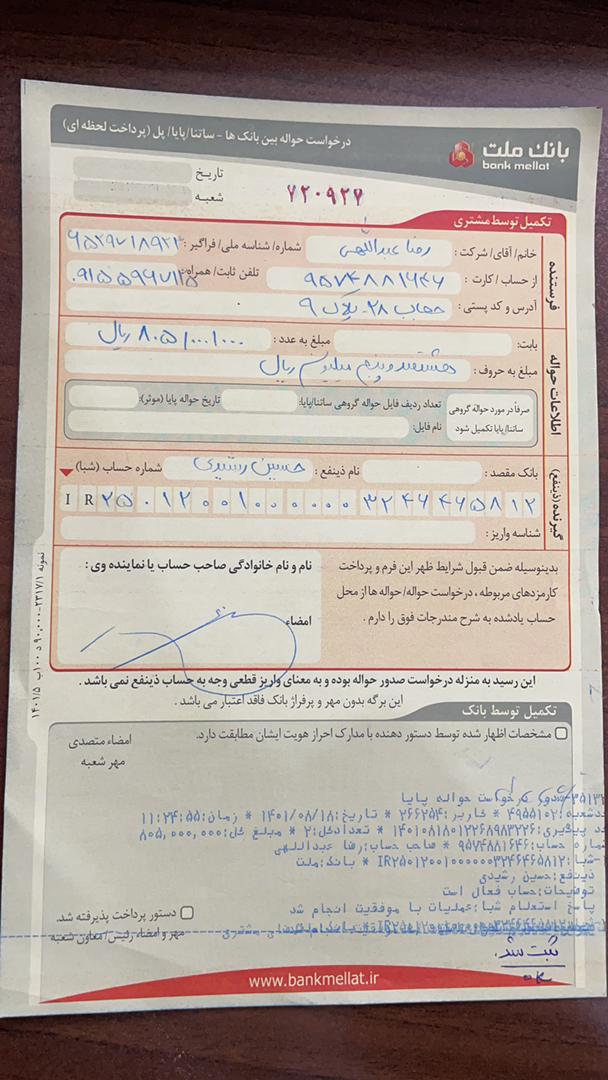 بانک ملت
bank mellat
درخواست حواله بین بانک ها - ساتنا/پایا/ پل (پرداخت لحظه ای)
تاریخ
شعبه
۷۲۰۹۲۷
تکمیل توسط مشتری
فرستنده
خانم/ آقای/ شرکت: رضا عبداللهی شماره/ شناسه ملی/ فراگیر:
از حساب/ کارت: ۹۵۷۴۸۸۱۶۴۶ تلفن ثابت/ همراه:
آدرس و کد پستی: ۲۸ - پلاک ۹
اطلاعات حواله
بابت: مبلغ به عدد: ۸۰۵/۰۰۰/۰۰۰ ریال
مبلغ به حروف: هشتصد و پنج میلیون ریال
صرفاً در مورد حواله گروهی ساتنا/پایا تکمیل شود
تعداد ردیف فایل حواله گروهی ساتنا/پایا: تاریخ حواله پایا (موثر):
نام فایل:
گیرنده (ذینفع)
بانک مقصد: نام ذینفع: حسین رشیدی شماره حساب (شبا)
IR ۲۵۰۱۲۰۰۱۰۰۰۰۰۰۳۲۴۶۴۶۵۸۱۲
شناسه واریز:
بدینوسیله ضمن قبول شرایط ظهر این فرم و پرداخت
کارمزدهای مربوطه، درخواست حواله/ حواله ها از محل
حساب یادشده به شرح مندرجات فوق را دارم.
نام و نام خانوادگی صاحب حساب یا نماینده وی:
امضاء
این رسید به منزله درخواست صدور حواله بوده و به معنای واریز قطعی وجه به حساب ذینفع نمی باشد.
این برگه بدون مهر و پرفراژ بانک فاقد اعتبار می باشد.
تکمیل توسط بانک
مشخصات اظهار شده توسط دستور دهنده با مدارک احراز هویت ایشان مطابقت دارد.
امضاء متصدی
مهر شعبه
درخواست حواله پایا
۴۹۵۵۱۰۲ * کاربر: ۲۶۶۲۵۴ * تاریخ: ۱۴۰۱/۰۸/۱۸ * زمان: ۱۱:۲۴:۵۵
پیگیری: ۱۴۰۱۰۸۱۸۰۱۲۲۶۸۹۸۳۲۲۶ * تعدادکل: ۲ * مبلغ کل: ۸۰۵,۰۰۰,۰۰۰
حساب: ۹۵۷۴۸۸۱۶۴۶ * صاحب حساب: رضا عبداللهی
شبا: IR۲۵۰۱۲۰۰۱۰۰۰۰۰۰۳۲۴۶۴۶۵۸۱۲ * بانک: ملت
ذینفع: حسین رشیدی
توضیحات: حساب فعال است
پاسخ استعلام شبا: عملیات با موفقیت انجام شد
دستور پرداخت پذیرفته شد.
مهر و امضاء رئیس/ معاون شعبه
ثبت شد.
نمونه ۲۳۱۷/۱
www.bankmellat.ir